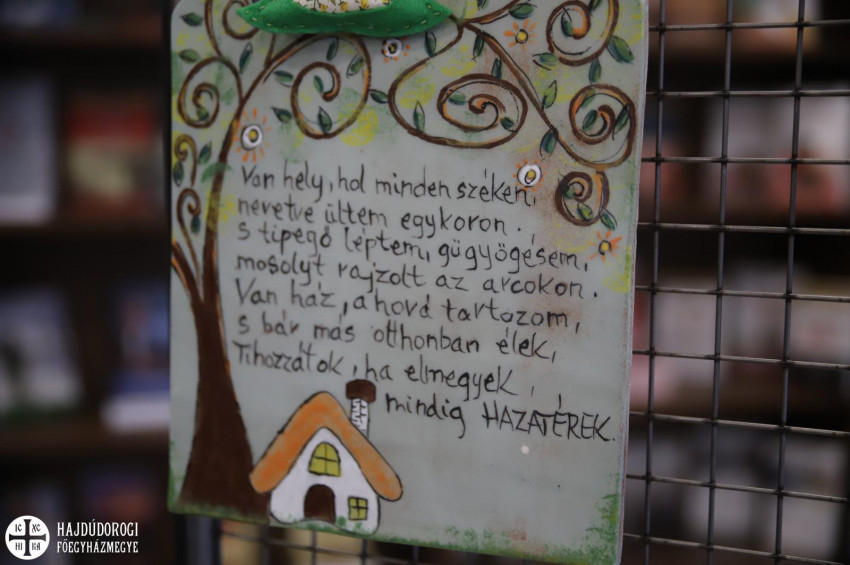 Van hely, hol minden széken,
nevetve ültem egykoron.
S tipegő léptem, gügyögésem,
mosolyt rajzolt az arcokon.
Van ház, ahová tartozom,
s bár más otthonban élek,
Tihozzátok, ha elmegyek,
mindig HAZATÉREK.
IC XC
HI KA
HAJDÚDOROGI
FŐEGYHÁZMEGYE